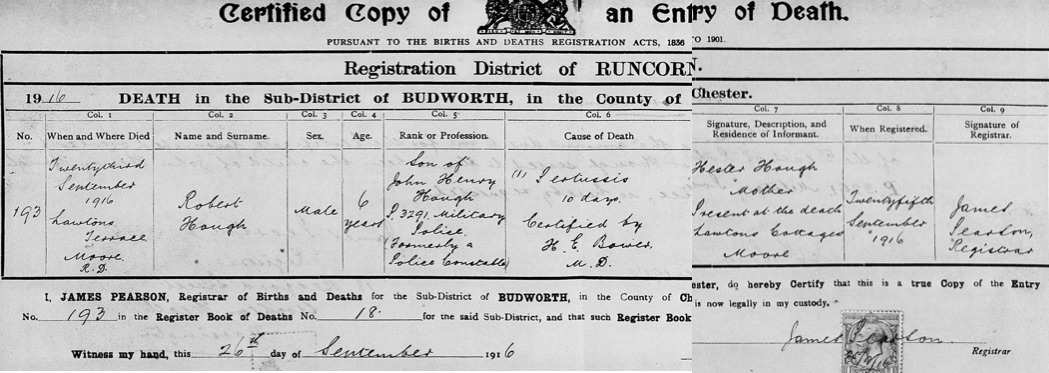 Certified Copy of an Entry of Death.
PURSUANT TO THE BIRTHS AND DEATHS REGISTRATION ACTS, 1836 TO 1901.
Registration District of RUNCORN.
1916 DEATH in the Sub-District of BUDWORTH, in the County of Chester.
Col. 1 Col. 2 Col. 3 Col. 4 Col. 5 Col. 6 Col. 7 Col. 8 Col. 9
No. When and Where Died Name and Surname. Sex. Age. Rank or Profession. Cause of Death Signature, Description, and Residence of Informant. When Registered. Signature of Registrar.
193
Twentythird
September
1916
Lawtons
Terrace
Moore
R.D.
Robert
Hough
Male
6
years
Son of
John Henry
Hough
P.3291. Military
Police.
Formerly a
Police Constable
(1) Pertussis
10 days.
Certified by
H. E. Bower.
M.D.
Hester Hough
Mother
Present at the death
Lawtons Cottages
Moore
Twentyfifth
September
1916
James
Pearson,
Registrar
I, JAMES PEARSON, Registrar of Births and Deaths for the Sub-District of BUDWORTH, in the County of Chester, do hereby Certify that this is a true Copy of the Entry
No. 193 in the Register Book of Deaths No. 18. for the said Sub-District, and that such Register Book is now legally in my custody.
Witness my hand, this 26th day of September 1916 James Pearson. Registrar